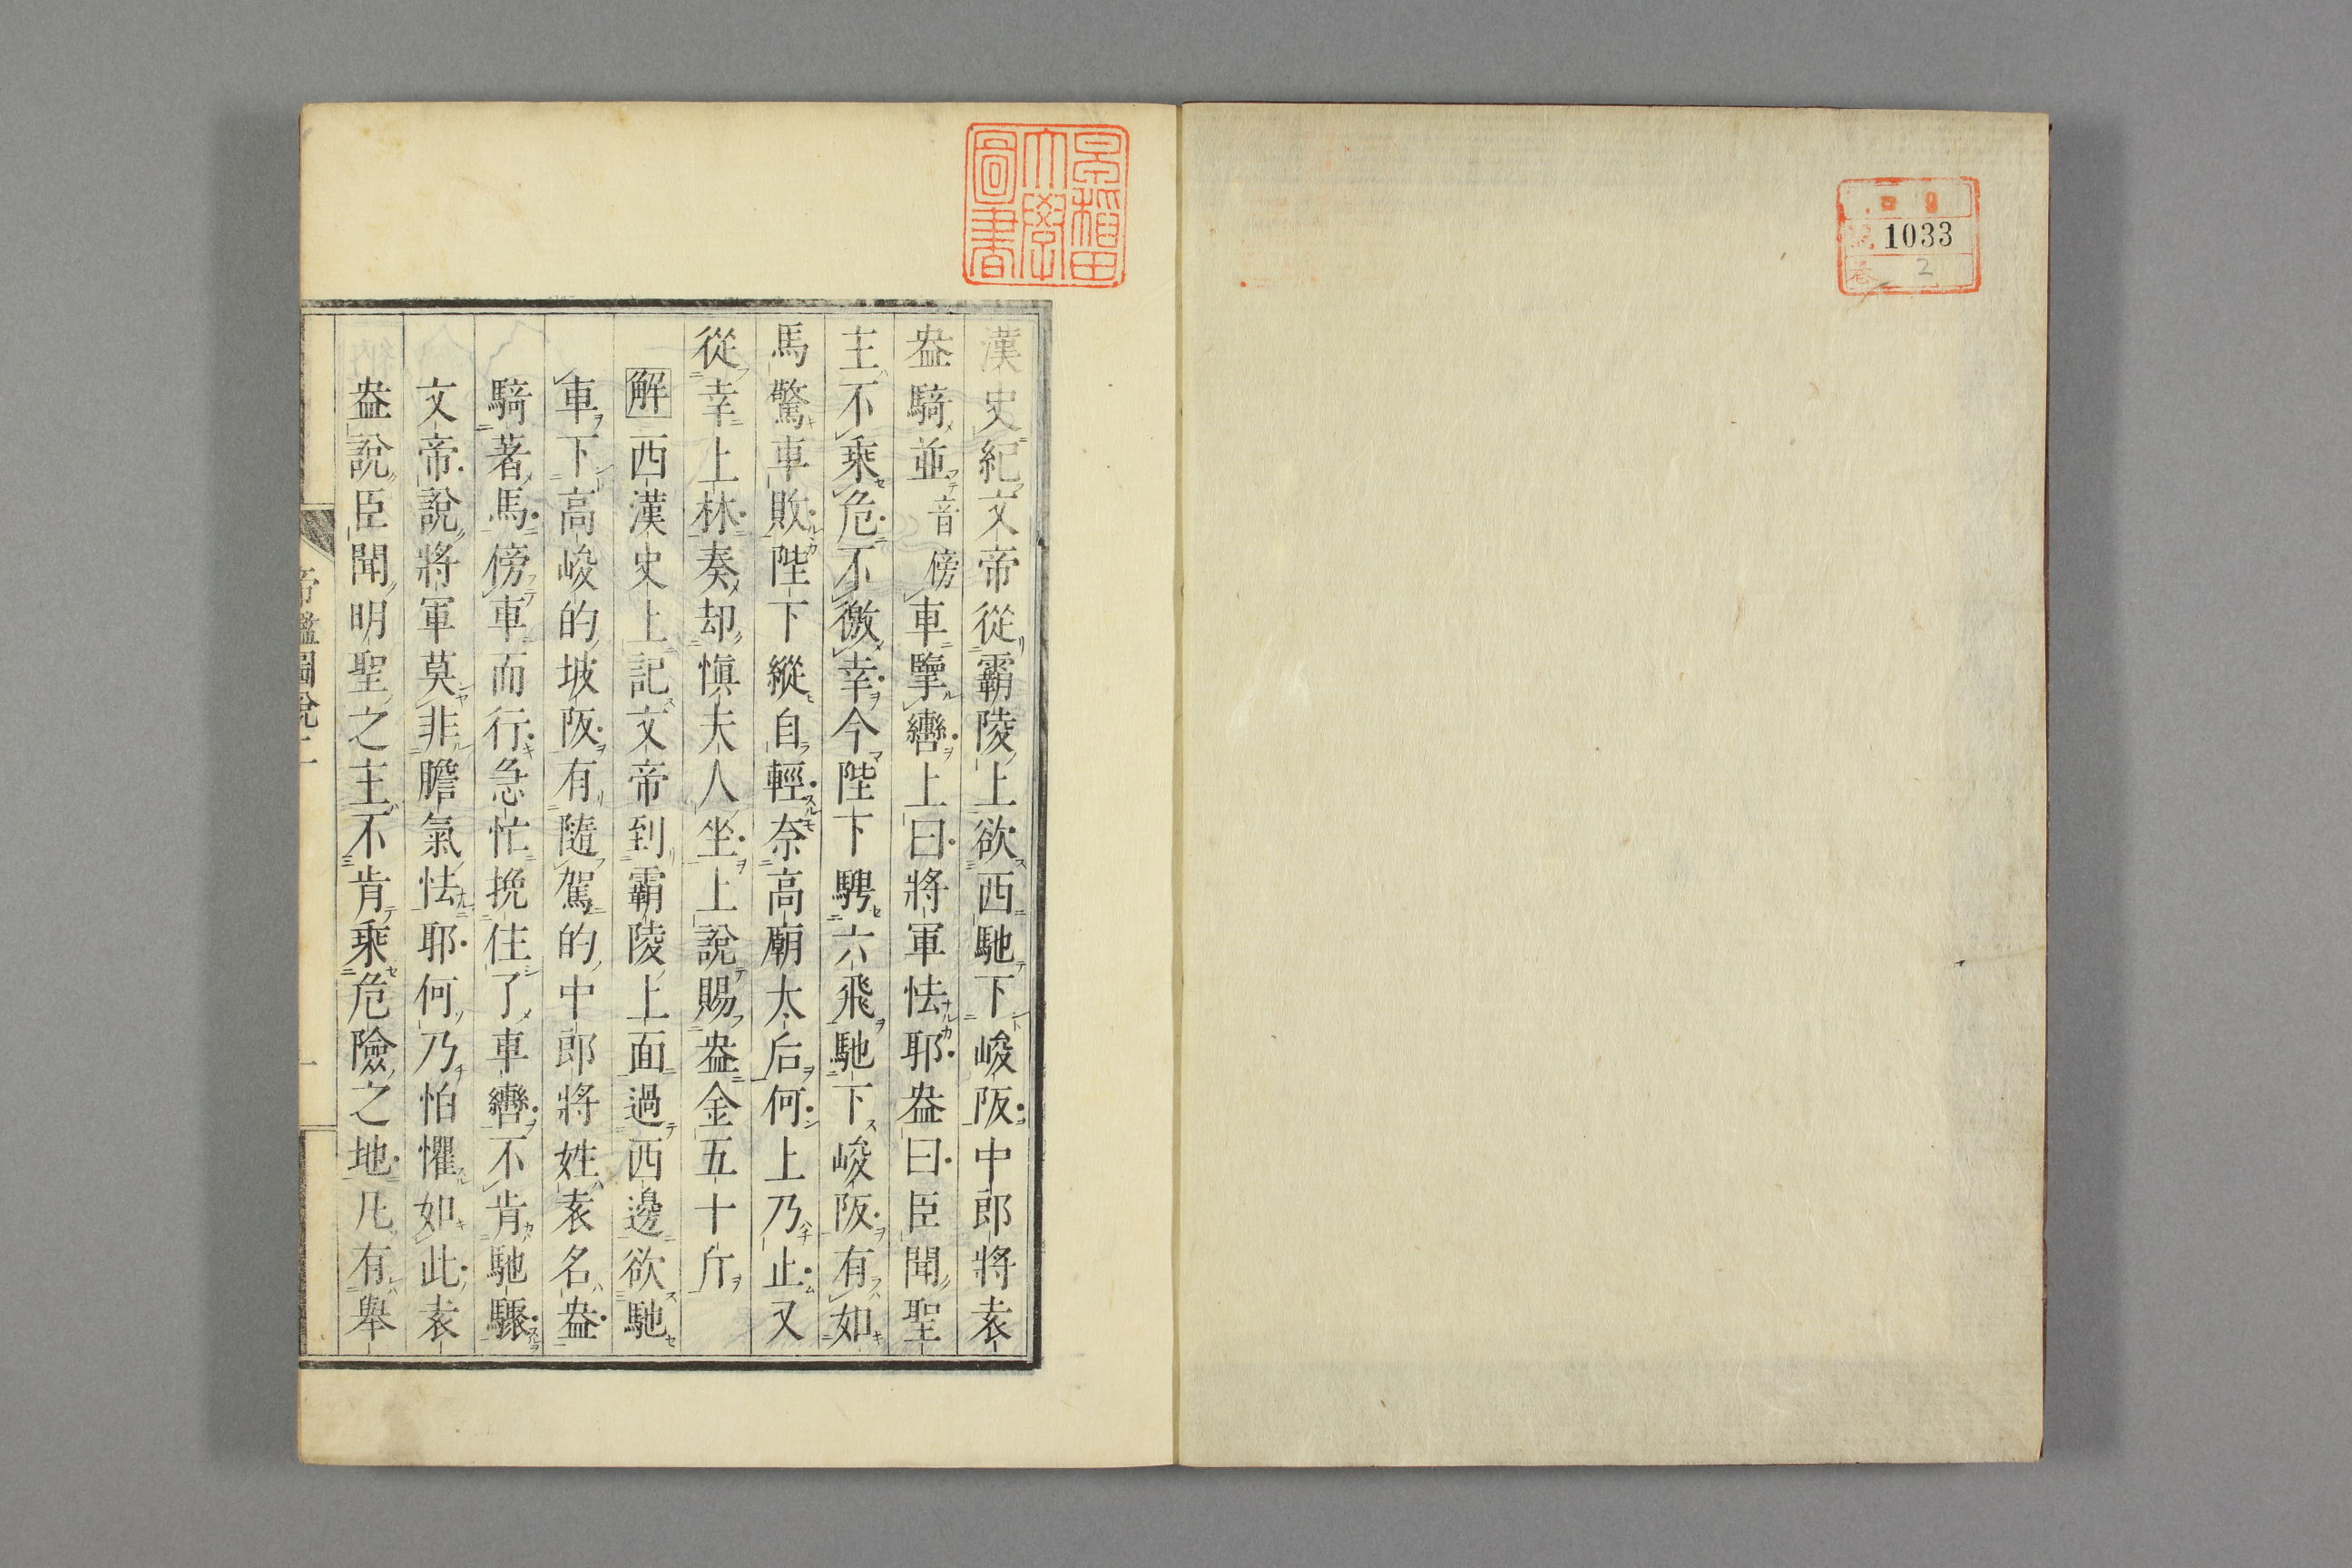 1033
2
早稲田
大學
圖書
漢史紀文帝從霸陵上欲西馳下峻阪中郎將袁
盎騎並音傍車擥轡上曰將軍怯耶盎曰臣聞聖
主不乘危不徼幸今陛下騁六飛馳下峻阪有如
馬驚車敗陛下縱自輕奈高廟太后何上乃止又
從幸上林奏却愼夫人坐上說賜盎金五十斤
解西漢史上記文帝到霸陵上面過西邊欲馳
車下高峻的坡阪有隨駕的中郎將姓袁名盎
騎著馬傍車而行急忙挽住了車轡不肯馳驟
文帝說將軍莫非膽氣怯耶何乃怕懼如此袁
盎說臣聞明聖之主不肯乘危險之地凡有舉
帝鑑圖說二 一